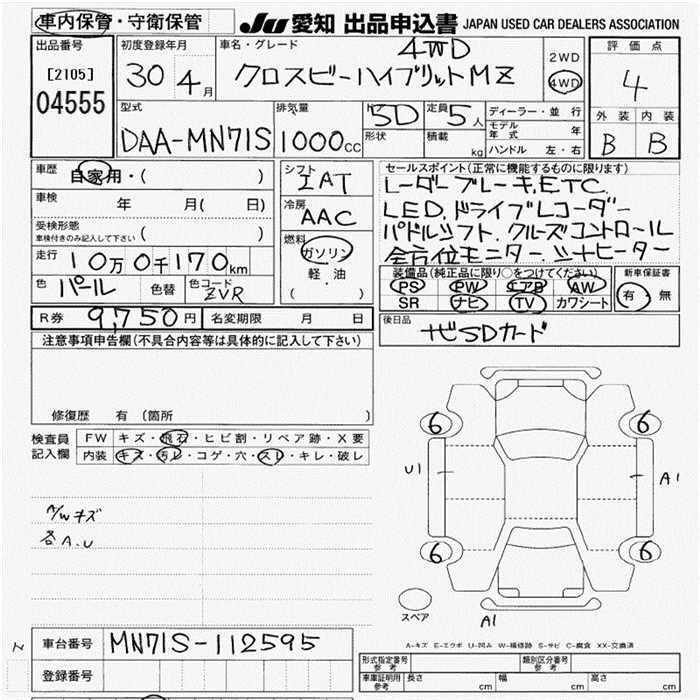 車内保管・守衛保管
JU 愛知 出品申込書 JAPAN USED CAR DEALERS ASSOCIATION
出品番号
[2105]
04555
初度登録年月
30 4月
車名・グレード
4WD
クロスビーハイブリットMZ
2WD
4WD
評価点
4
外装 内装
B B
型式
DAA-MN71S
排気量
1000CC
5D
形状
定員 5人
積載 kg
ディーラー・並行
モデル年式 年
ハンドル 左・右
車歴
自家用・( )
車検 年 月( 日)
受検形態
車検付きのみ記入して下さい ( )
走行 10万0千170km
色 パール 色替 色コード ZVR
シフト
IAT
冷房
AAC
燃料
ガソリン
軽・油
( )
セールスポイント(正常に機能するものに限ります)
レーダーブレーキ.ETC.
LED.ドライブレコーダー
パドルシフト.クルーズコントロール
全方位モニター.シートヒーター
装備品(純正品に限り○をつけてください)
PS PW エアB AW
SR ナビ TV カワシート
新車保証書
有・無
R券 9,750円 名変期限 月 日
後日品
ナビSDカード
注意事項申告欄(不具合内容等は具体的に記入して下さい)
修復歴 有(箇所 )
検査員記入欄
FW キズ・飛石・ヒビ割・リペア跡・X要
内装 キズ・汚レ・コゲ・穴・スレ・キレ・破レ
A/Wキズ
各A.U
6 6
U1 A1
6 6
スペア
A1
A-キズ E-エクボ U-凹み W-補修跡 S-サビ C-腐食 XX-交換済
車台番号 MN71S-112595
登録番号
形式指定番号 参考
類別区分番号 参考
車庫証明用 参考 長さ cm 幅 cm 高さ cm